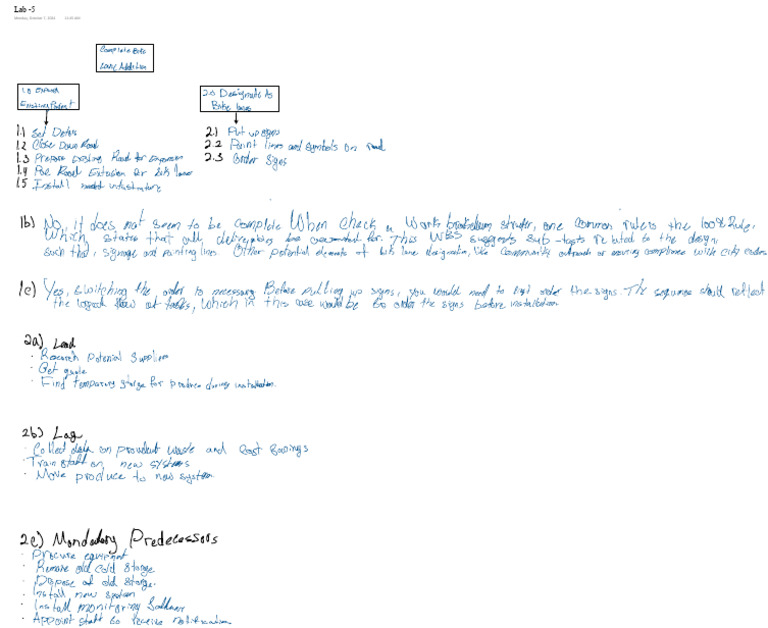 Lab -5
Monday, October 7, 2024
Complete Bike
Lane Addition
1.0 Expand
Existing Pavement
2.0 Designate As
Bike lanes
1.1 Set Detors
1.2 Close Down Road
1.3 Prepare Existing Road for Expansion
1.4 Road Extension for bike lanes
1.5 Install needed infrastructure
2.1 Put up signs
2.2 Paint lines and symbols on road
2.3 Order Signs
1b) No, it does not seem to be complete When check a Work breakdown structer, one common rule is the 100% Rule,
Which states that all deliverables be accounted for. This WBS suggests sub-tasks related to the design,
such that, signage and painting lines. Other potential elements of bike lane designation, like Community outreach or ensuring compliance with city codes
1c) Yes, switching the order is necessary. Before putting up signs, you would need to first order the signs. The sequence should reflect
the logical flow of tasks, which in this case would be to order the signs before installation
2a) Lead
· Research Potenial Suppliers
· Get quote
· Find temporary storge for produce during installation.
2b) Lag
· Collect data on product waste and cost savings
· Train staff on new systems
· Move produce to new system
2c) Mandatory Predecessors
· Procure equipment
· Remove old cold Storge
· Dispose of old storge.
· Install new system
· Install monitoring Software
· Appoint staff to receive notification